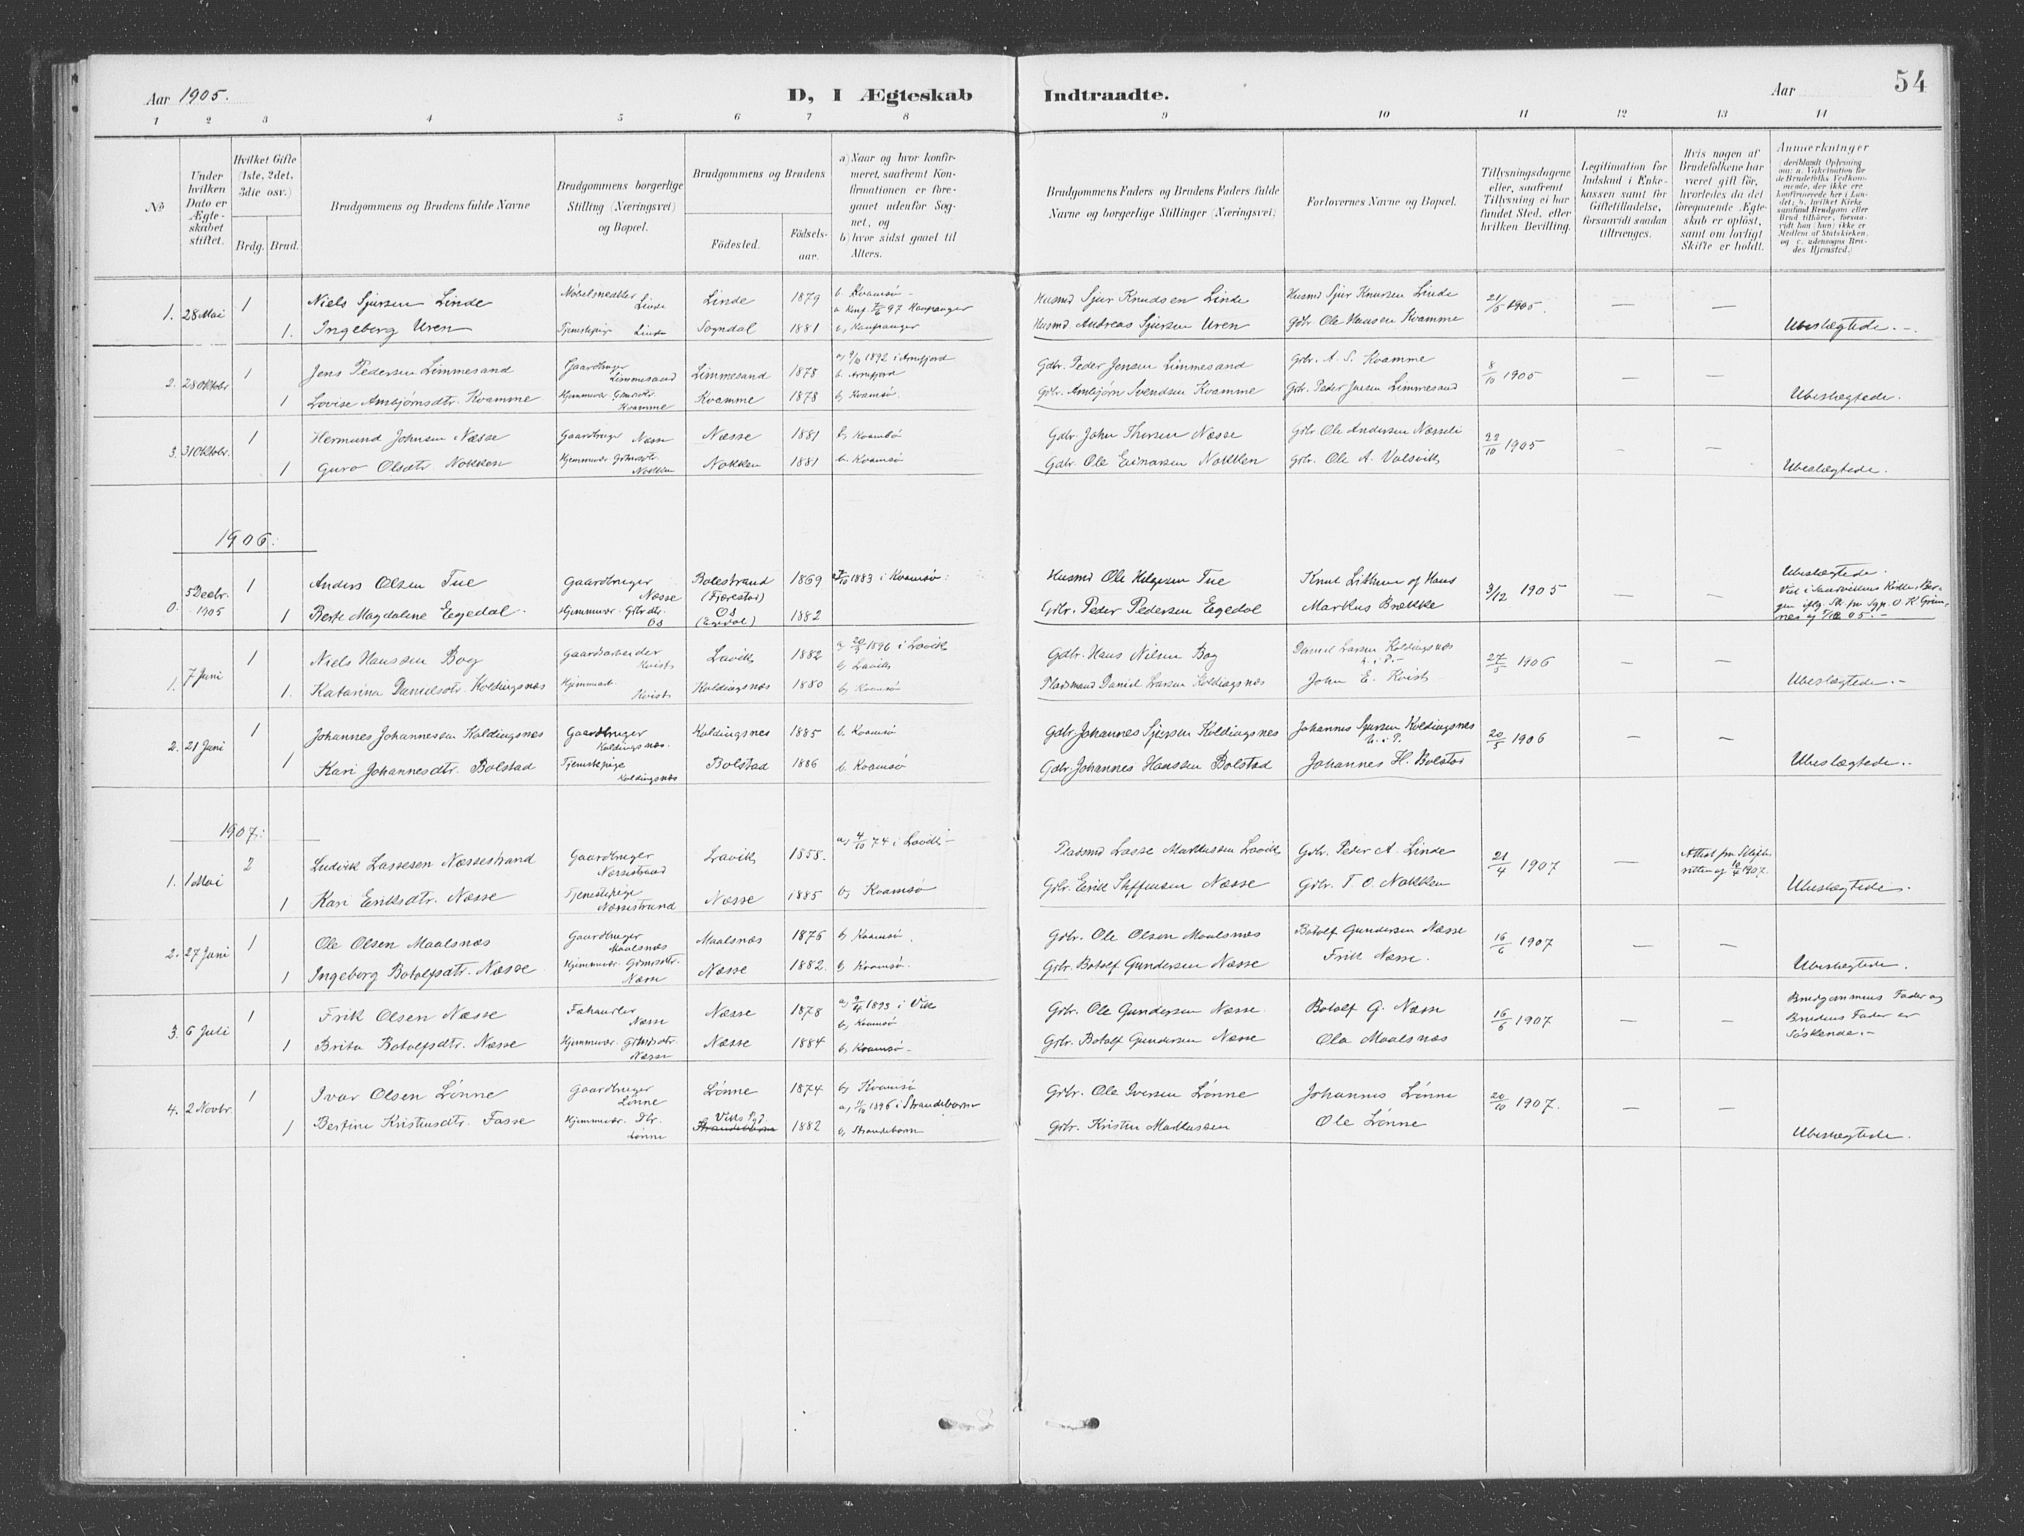 Aar 1905.
D, I Ægteskab Indtraadte.
Aar
54
1 2 3 4 5 6 7 8 9 10 11 12 13 14
No
Under hvilken Dato er Ægteskabet stiftet.
Hvilket Gifte (1ste, 2det, 3die osv.)
Brdg. Brud.
Brudgommens og Brudens fulde Navne
Brudgommens borgerlige Stilling (Næringsvei) og Bopæl.
Brudgommens og Brudens
Födested.
Födselsaar.
a) Naar og hvor konfirmeret, saafremt Konfirmationen er foregaaet udenfor Sognet, og
b) hvor sidst gaaet til Alters.
Brudgommens Faders og Brudens Faders fulde Navne og borgerlige Stillinger (Næringsvei)
Forlovernes Navne og Bopæl.
Tillysningsdagene eller, saafremt Tillysning ei har fundet Sted, efter hvilken Bevilling.
Legitimation for Indskud i Enkekassen samt for Giftetilladelse, forsaavidt saadan tiltrænges.
Hvis nogen af Brudefolkene har været gift för, hvorledes da det foregaaende Ægteskab er oplöst, samt om lovligt Skifte er holdt.
Anmerkninger
(deriblandt Oplysning om: a. Vakcination for de Brudefolks Vedkommende, der ikke ere konfirmerede her i Landet; b. hvilket Kirkesamfund Brudgom eller Brud tilhörer, forsaavidt han (hun) ikke er Medlem af Statskirken, og c. udensogns Brudes Hjemsted.)
1. 28 Mai 1 Niels Sjursen Linde Møbelsnedker Linde Linde 1879 b. Kvamsø Husmd Sjur Knudsen Linde Husmd Sjur Knutsen Linde 21/5 1905. — —
1. Ingeberg Uren Tjenestepige Linde Sogndal 1881 b. Kaupanger Husmd Andreas Sjursen Uren Gbr. Ole Hansen Kvamme Ubeslægtede.
2. 28 Oktobr 1 Jens Pedersen Limmesand Gaardbruger Limmesand Limmesand 1878 a) 9/10 1892 i Arnefjord b. Arnefjord Gdbr. Peder Jensen Limmesand Grbr. A. S. Kvamme 8/10 1905 — —
1 Lovise Ambjørnsdtr. Kvamme Hjemmevær. Grmsdtr. Kvamme Kvamme 1878 b) Kvamsø. Grbr. Ambjørn Svendsen Kvamme Grbr. Peder Jensen Limmesand Ubeslægtede.
3. 31 Oktobr. 1 Hermund Johnsen Næsse Gaardbruger Næsse Næsse 1881 b) Kvamsø Gdbr. John Thorsen Næsse Grbr. Ole Andersen Nesseli 22/10 1905 — —
1 Guro Olsdtr. Nokken Hjemmevær. Grbrsdtr. Nokken Nokken 1881 b. Kvamsø Gdbr. Ole Einarsen Nokken Grbr. Ole A. Valsvik Ubeslægtede.
1906:
0. 5 Decbr. 1905 1 Anders Olsen Tue Gaardbruger Næsse Balestrand (Fjærestad) 1869 1883 i Kvamsø: Husmd Ole Helgesen Tue 3/12 1905 — — Ubeslægtede.
1 Berte Magdalene Egedal. Hjemmevær. Grbrdtr. Os Os (Egedal) 1882 Grbr. Peder Pedersen Egedal Markus Brække
1. 7 Juni 1 Niels Hanssen Bog Gaardsarbeider Kvist Lavik 1882 1896 i Lavik b) Lavik Gdbr. Hans Nilsen Bog Daniel Larsen Koldingsnæs 27/5 1906 — —
1. Katarina Danielsdtr. Koldingsnæs Kvist Koldingsnæs 1880 b) Kvamsø Pladsmand Daniel Larsen Koldingsnæs John E. Kvist Ubeslægtede.
2. 21 Juni 1 Johannes Johannessen Koldingsnæs Gaardbruger Koldingsnæs. Koldingsnes 1885 b. Kvamsø Gdbr. Johannes Sjursen Koldingsnes Johannes Sjursen Koldingsnes 20/5 1906 — —
1 Kari Johannesdtr. Bolstad Tjenestepige Koldingsnæs Bolstad 1886 b. Kvamsø Gdbr. Johannes Hanssen Bolstad Johannes H. Bolstad Ubeslægtede.
1907:
1. 1 Mai 2 Ludvik Lassesen Næssestrand Gaardbruger Næssestrand Lavik 1858. a) 4/10 74 i Lavik Pladsmd Lasse Markussen Lavik Grbr. Peder A. Linde 21/4 1907 — Attest fra Skifteretten af 10/4 1907.
1 Kari Eriksdtr. Næsse Tjenestepige Næssestrand Næsse 1885 b) Kvamsø Grbr. Erik Steffensen Næsse Grbr. T. O. Nokken Ubeslægtede.
2. 27 Juni 1 Ole Olsen Maalsnæs Gaardbruger Maalsnæs Maalsnæs 1876 b) Kvamsø. Grbr. Ole Olsen Maalsnæs Botolf Gundersen Næsse 16/6 1907 — —
1 Ingeborg Botolfsdtr. Næsse. Hjemmevær. Grmsdtr. Næsse Næsse 1882. b) Kvamsø. Grbr. Botolf Gundersen Næsse Frik Næsse. Ubeslægtede.
3. 6 Juli 1 Frik Olsen Næsse Fæhandler Næsse Næsse 1878 1893 i Vik b) Kvamsø Grbr. Ole Gundersen Næsse. Botolf G. Næsse 16/6 1907 — — Brudgommens Fader og Brudens Fader er Søskende.
1 Brita Botolfsdtr. Næsse Hjemmevær. Grbrsdtr. Næsse Næsse 1884 b) Kvamsø Grbr. Botolf Gundersen Næsse Ole Maalsnæs
4. 2 Novbr. 1 Ivar Olsen Lønne Gaardbruger Lønne Lønne 1874 b) Kvamsø Grbr. Ole Iversen Lønne Johannes Lønne 20/10 1907. — —
1 Bertine Kristensdtr. Fosse Hjemmevær. Dtr. Lønne Viks Pgd 1882 1896 i Strandebarm b) Strandebarm Grbr. Kristen Markussen Ole Lønne Ubeslægtede.